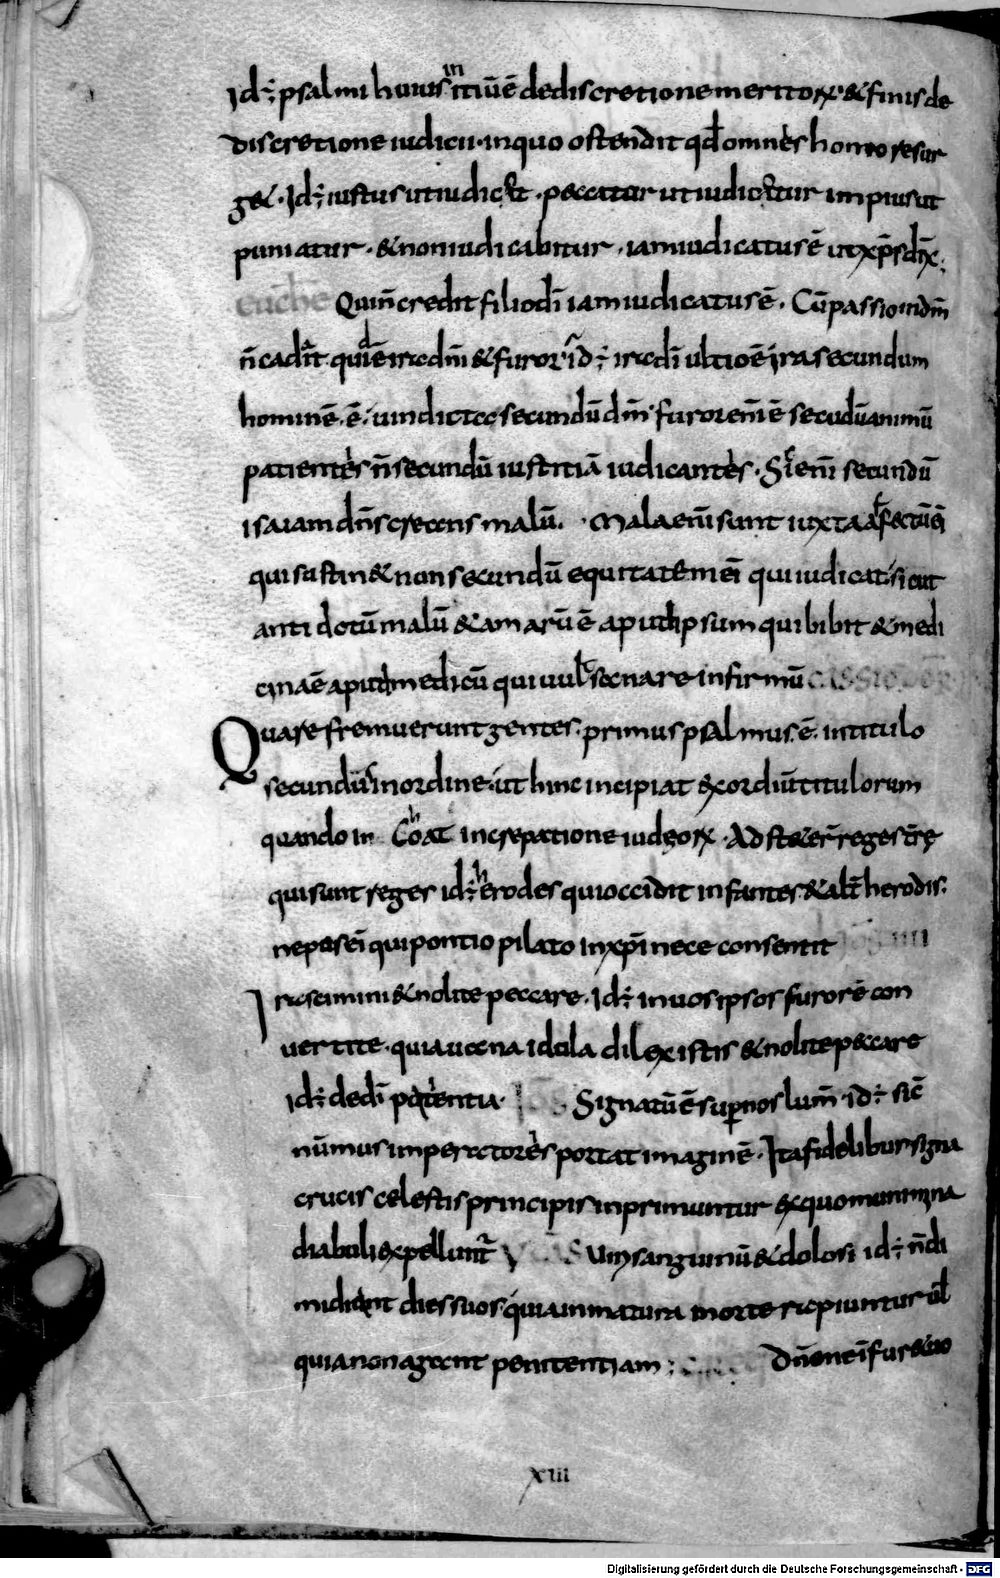 id÷ psalmi huius initiū ē de discretione meritorꝝ & finis de
discretione iudicii. in quo ostendit qđ omnes homo resur
g&. id÷ iustus ut iudic&. peccator ut iudic&ur impius ut
puniatur. & non iudicabitur. iam iudicatus ē ut xp̄s dix̄.
Qui n̄ credit filio dī iam iudicatus ē. Cū passio in dm̄
n̄ cadit quid ē ira dm̄ & furor id÷ ira dī ultio ē ira secundum
hominē ē. uindicta secundū dm̄ furor enī ē secūdū animū
patientes n̄ secundū iustitiā iudicantes. Sic enī secundū
isaiam dn̄s creans malū. Mala enī sunt iuxta affectū eī
qui sustin& non secundū equitatē mei qui iudicat. sicut
antidotū malū & amarū ē apud ipsum qui bibit & medi
cina ē apud medicū qui uult sanare infirmū CASSIODOR
Quare fremuerunt gentes. primus psalmus ē. in titulo
secundus in ordine. ut hinc incipiat exordiū titulorum
quando in increpatione iudeorꝝ. Adstet̄ reges tr̄ę
qui sunt reges id÷ herodes qui occidit infantes & alt̄ herodis
nepos eī qui pontio pilato in xp̄i nece consentit
Irascimini & nolite peccare. id÷ in uos ipsos furorē con
uertite. quia uana idola dilexistis & nolite peccare
id÷ Signatū ē super nos lum̄ id÷ sic̄
nūmus imperatores portat imaginē. Ita fidelibus signa
crucis celestis principis inprimuntur ex quo munimina
diaboli expelluntr̄ Uiri sanguinū & dolosi id÷ n̄ di
midiant dies suos quia inmatura morte rapiuntur uł
quia non agant penitentiam:
xiii
Digitalisierung gefördert durch die Deutsche Forschungsgemeinschaft - DFG